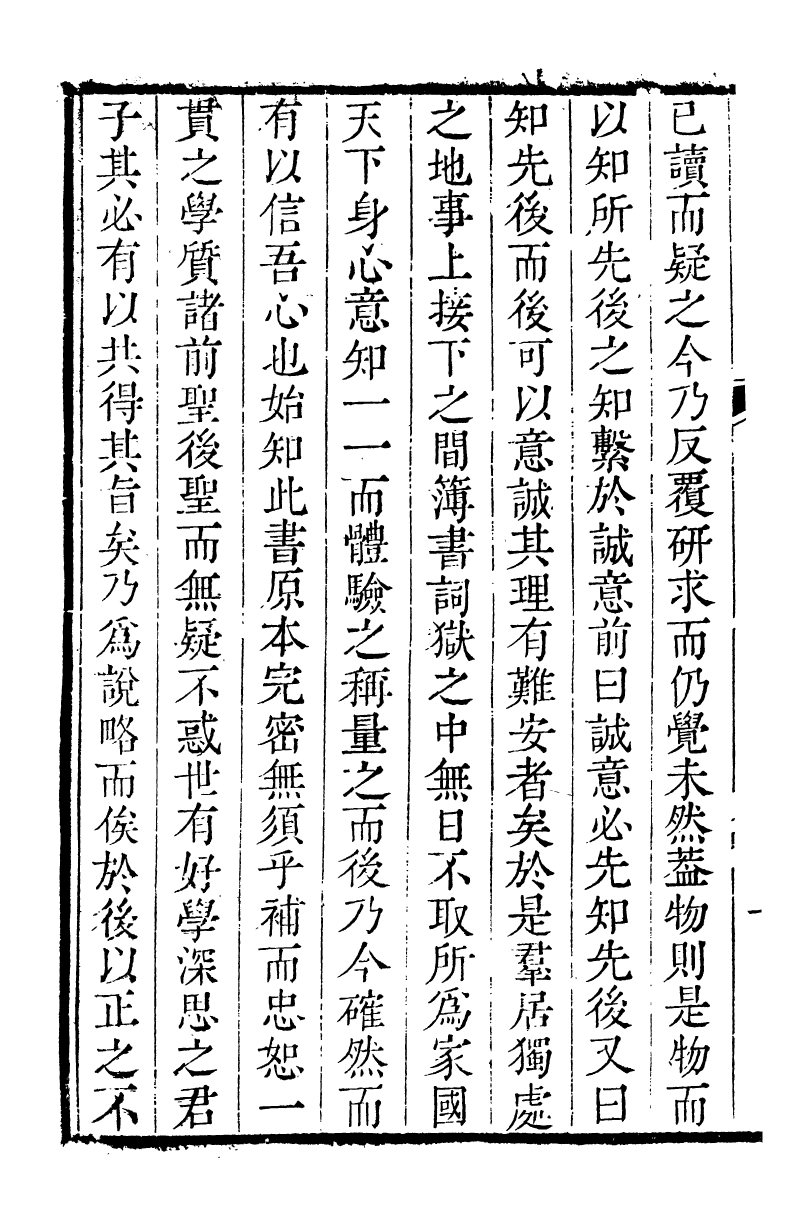 已讀而疑之今乃反覆研求而仍覺未然葢物則是物而
以知所先後之知繫於誠意前曰誠意必先知先後又曰
知先後而後可以意誠其理有難安者矣於是羣居獨處
之地事上接下之間簿書詞獄之中無日不取所爲家國
天下身心意知一一而體驗之稱量之而後乃今確然而
有以信吾心也始知此書原本完密無須乎補而忠恕一
貫之學質諸前聖後聖而無疑不惑世有好學深思之君
子其必有以共得其旨矣乃爲說略而俟於後以正之不